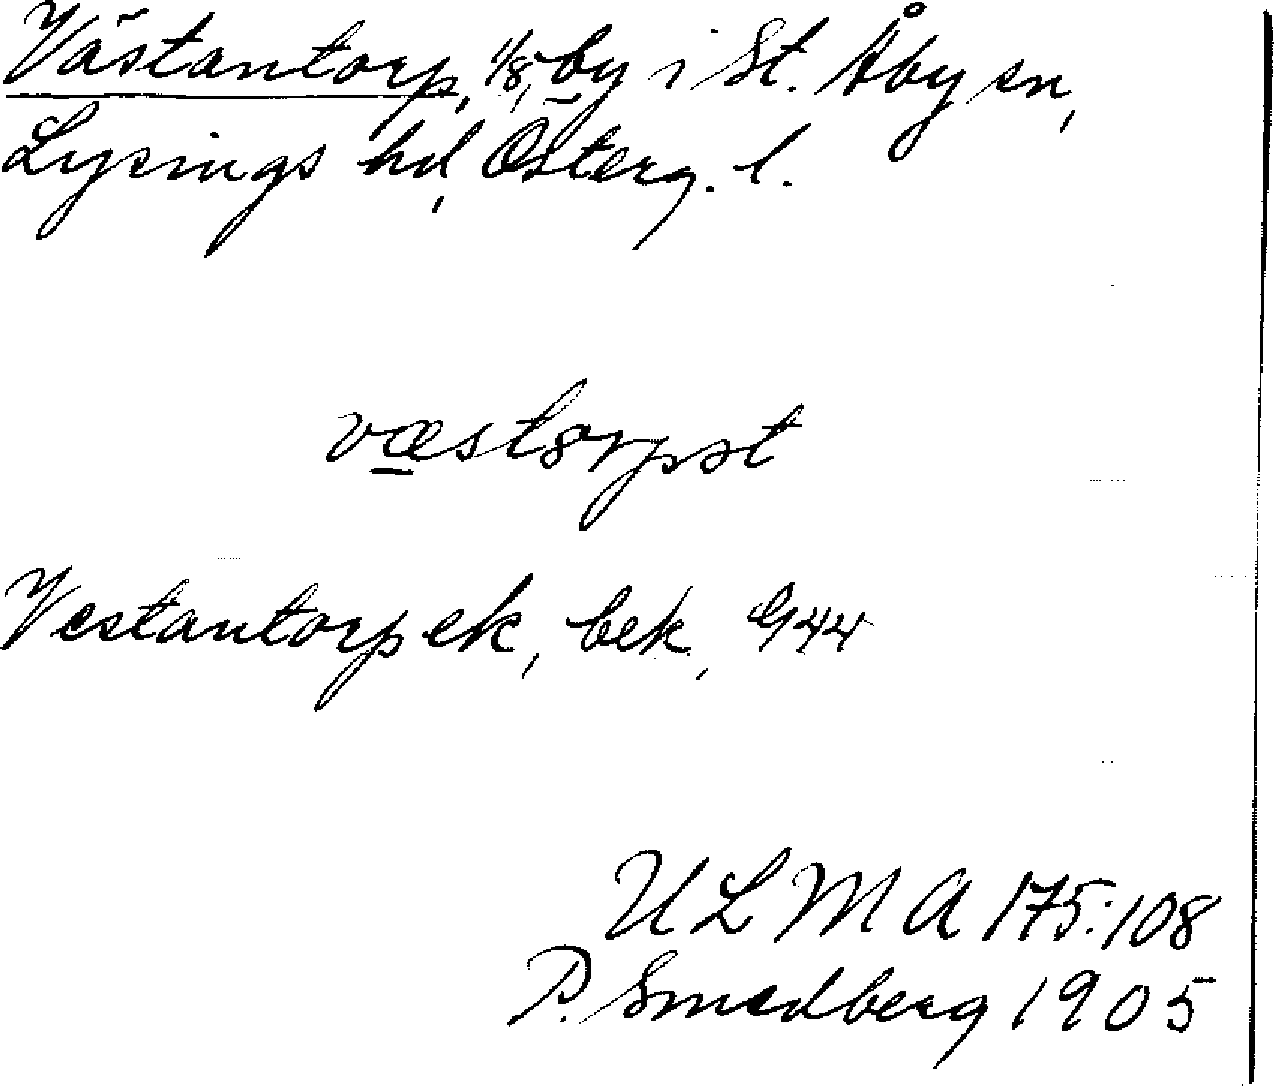 Västantorp, 1/8, by i St. Åby sn,
Lysings hd, Österg. l.
væstorpst
Vestantorp ek, bek, G44
ULMA 175:108
P. Smedberg 1905